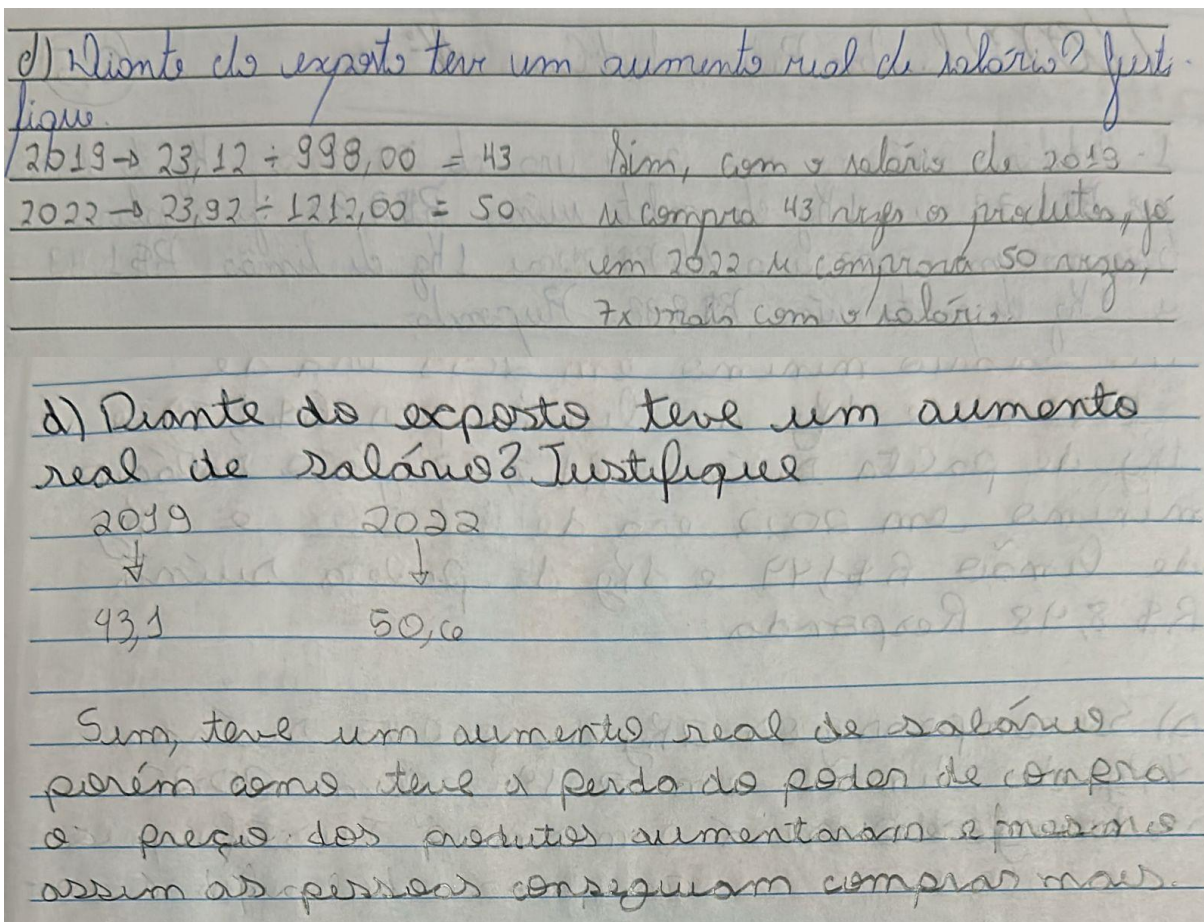 d) Diante do exposto teve um aumento real de salário? Justi-
fique.
2019→ 23,12 ÷ 998,00 = 43 Sim, com o salário de 2019
2022→ 23,92 ÷ 1212,00 = 50 se compra 43 vezes os produtos, já
em 2022 se comprará 50 vezes,
7x mais com o salário.
d) Diante do exposto teve um aumento
real de salário? Justifique
2019 2022
↓ ↓
43,1 50,6
Sim, teve um aumento real de salário
porém como teve a perda do poder de compra
o preço dos produtos aumentaram e mesmo
assim as pessoas conseguiam compras mais.